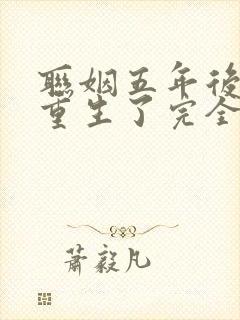 聯姻五年後
重生了完全
蕭毅凡